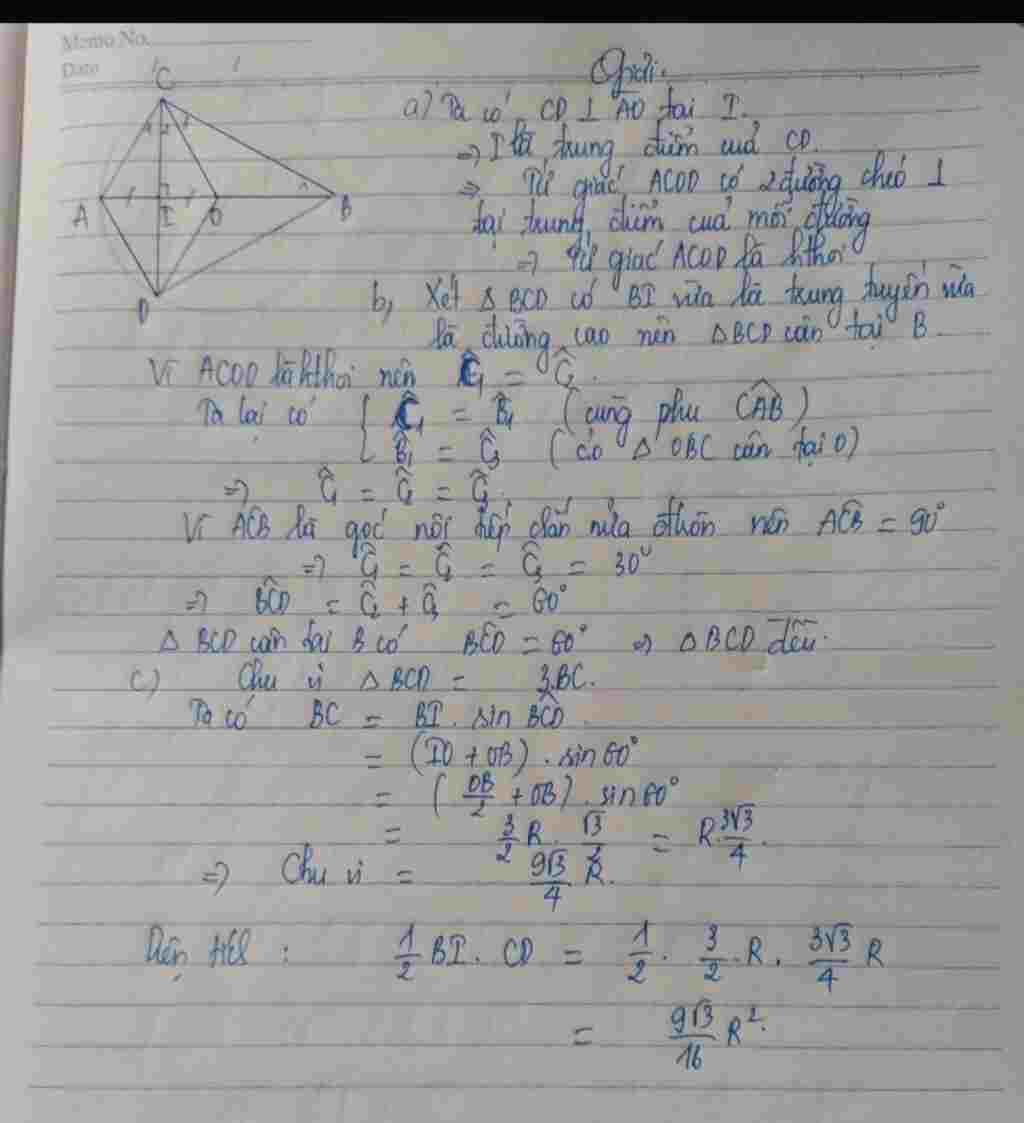 Memo No.
Date
Giải.
a) Ta có CD ⊥ AO tại I.
=> I là trung điểm cuả CD.
=> Tứ giác ACOD có 2 đường chéo ⊥
tại trung điểm cuả mỗi đường
=> Tứ giác ACOD là hthoi
C
A
I
O
B
D
b, Xét △ BCD có BI vừa là trung tuyến vừa
là đường cao nên △BCD cân tại B.
Vì ACOD là hthoi nên Ĉ₁ = Ĉ₂.
Ta lại có { Ĉ₁ = B̂₁ (cùng phụ CÂB)
B̂₁ = Ĉ₃ (có △ OBC cân tại O)
=> Ĉ₁ = Ĉ₂ = Ĉ₃.
Vì AĈB là góc nội tiếp chắn nửa đtròn nên AĈB = 90°
=> Ĉ₁ = Ĉ₂ = Ĉ₃ = 30°
=> BĈD = Ĉ₂ + Ĉ₃ = 60°
△ BCD cân tại B có BĈD = 60° => △ BCD đều.
c) Chu vi △ BCD = 3.BC.
Ta có BC = BI . sin BĈD.
= (IO + OB) . sin 60°
= (OB/2 + OB) . sin 60°
= 3/2 R . √3/2 = R. 3√3/4.
=> Chu vi = 9√3/4 R.
Diện tích : 1/2 BI . CD = 1/2 . 3/2 . R . 3√3/4 R
= 9√3/16 R².